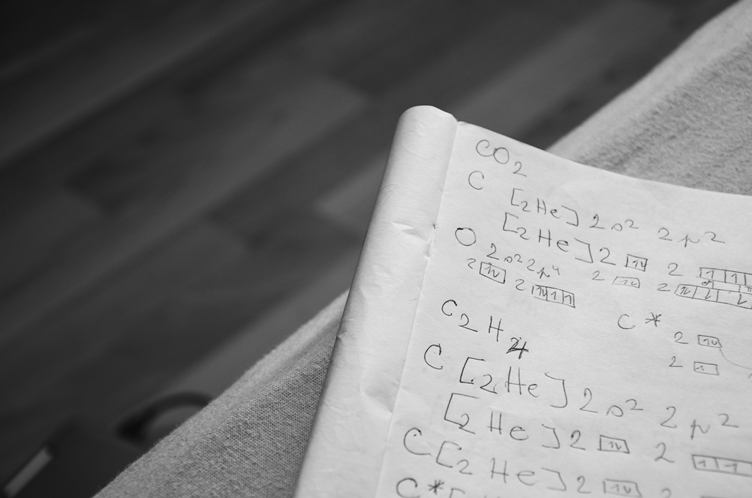 CO2
C [2He] 2s2 2p2
[2He] 2 2
O 2s2 2p4
2 2 2 2
C* 2
2
C2H4
C [2He] 2s2 2p2
[2He] 2 2
C [2He] 2 2
C* [